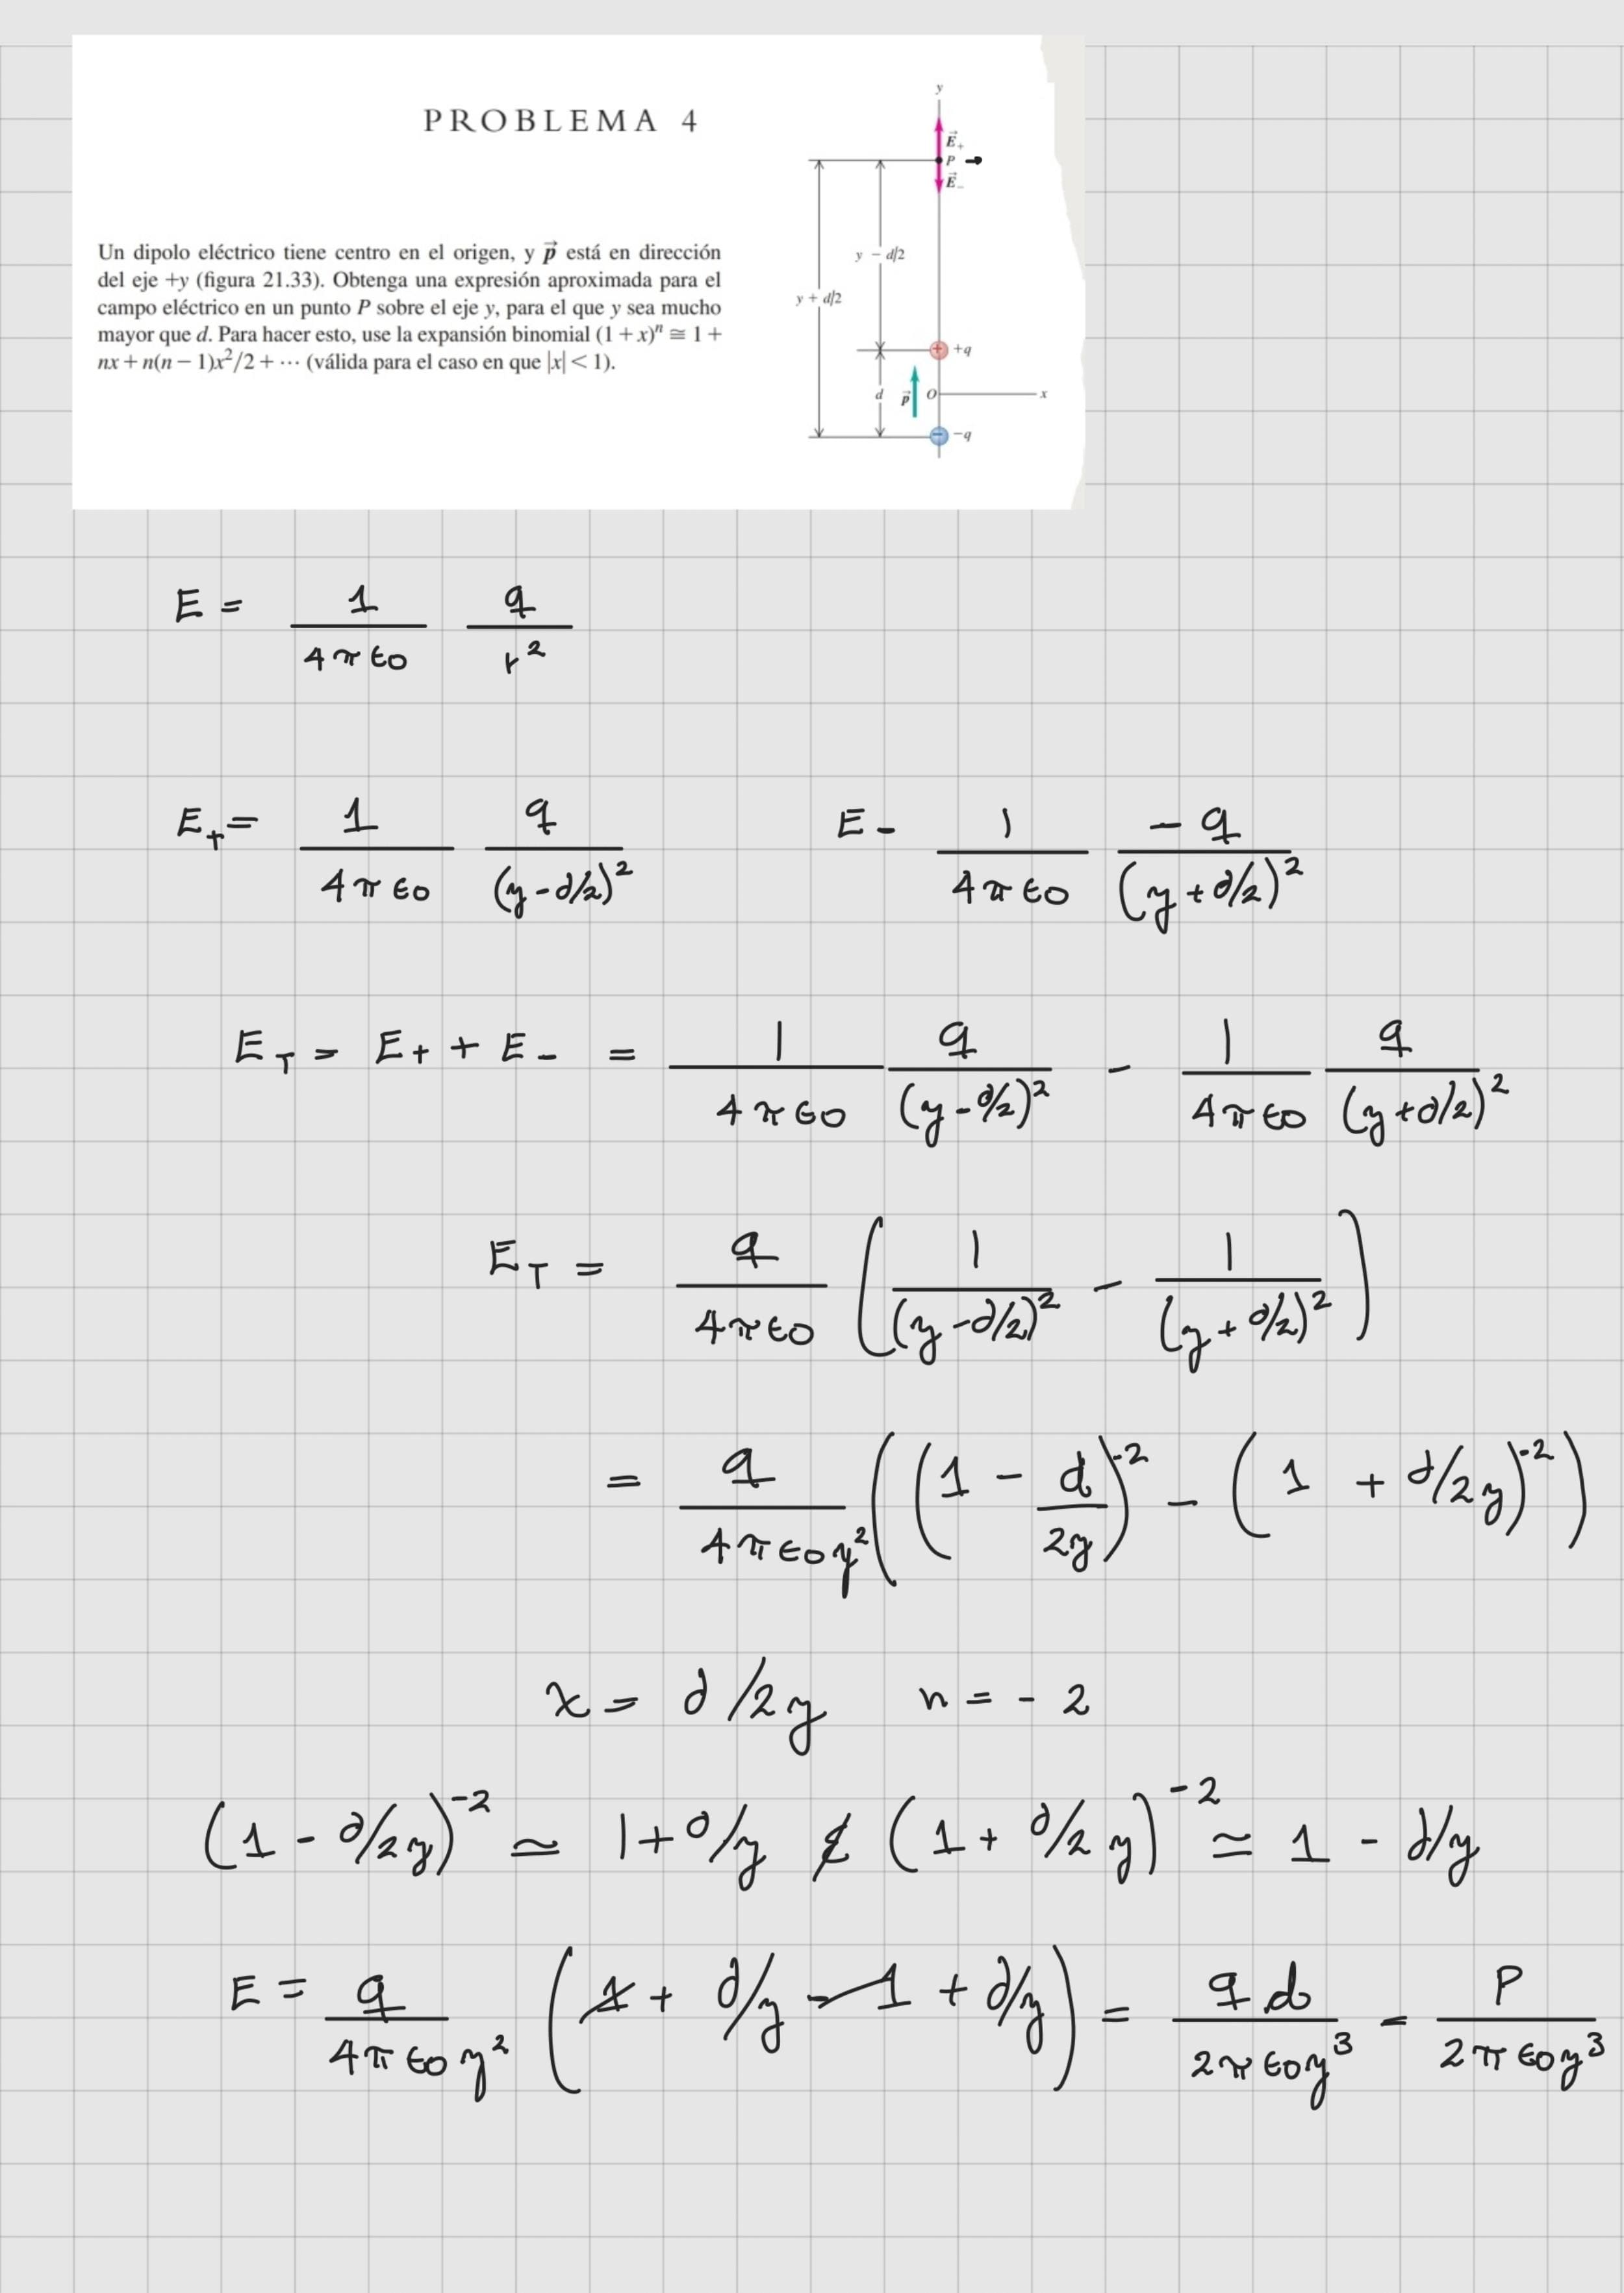 PROBLEMA 4
Un dipolo eléctrico tiene centro en el origen, y p⃗ está en dirección
del eje +y (figura 21.33). Obtenga una expresión aproximada para el
campo eléctrico en un punto P sobre el eje y, para el que y sea mucho
mayor que d. Para hacer esto, use la expansión binomial (1 + x)ⁿ ≅ 1 +
nx + n(n − 1)x²/2 + ⋯ (válida para el caso en que |x| < 1).
y
E⃗₊
P
E⃗₋
y − d/2
y + d/2
+
+q
d
p⃗
O
x
−
−q
E = 1/(4πϵ0) q/r²
E₊ = 1/(4πϵ0) q/(y - d/2)²
E - 1/(4πϵ0) -q/(y + d/2)²
E_T = E₊ + E₋ = 1/(4πϵ0) q/(y - d/2)² - 1/(4πϵ0) q/(y + d/2)²
E_T = q/(4πϵ0) (1/(y - d/2)² - 1/(y + d/2)²)
= q/(4πϵ0y²) ((1 - d/2y)⁻² - (1 + d/2y)⁻²)
x = d/2y n = - 2
(1 - d/2y)⁻² ≃ 1 + d/y (1 + d/2y)⁻² ≃ 1 - d/y
E = q/(4πϵ0y²) (1 + d/y - 1 + d/y) = qd/(2πϵ0y³) = P/(2πϵ0y³)